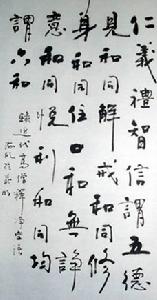 仁義禮智信謂五德
見和同解戒和同修
身和同住口和無諍
意和同悅利和同均
謂六和
近代高僧釋